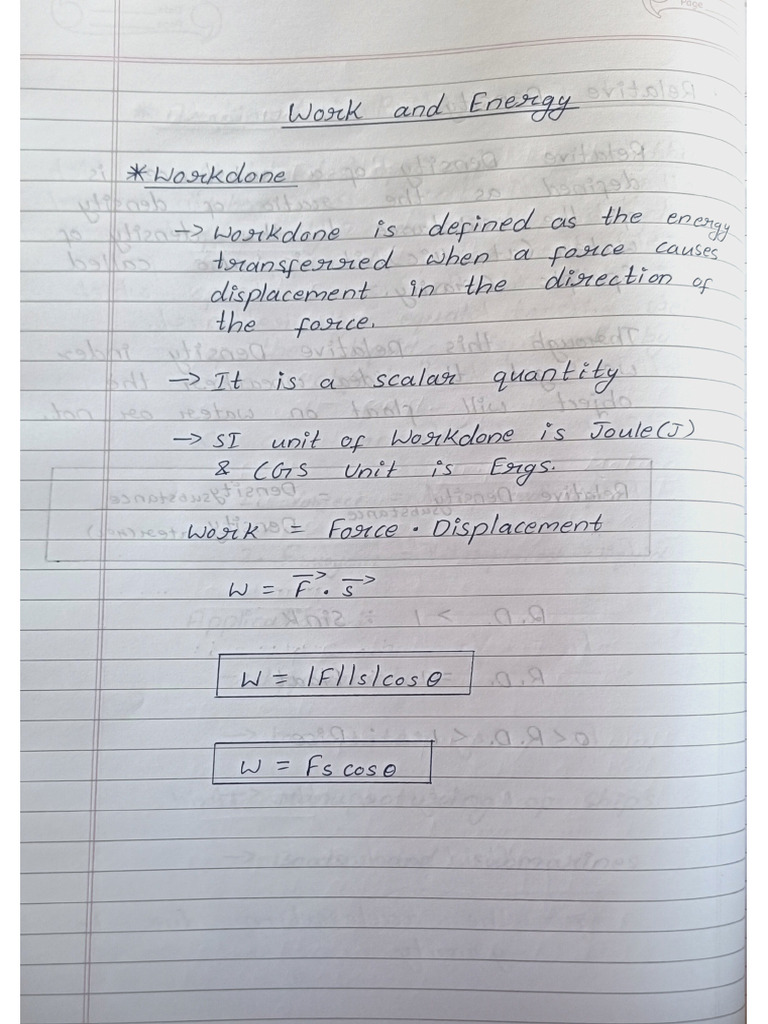 Page
Work and Energy
* Workdone
→ Workdone is defined as the energy
transferred when a force causes
displacement in the direction of
the force.
→ It is a scalar quantity
→ SI unit of Workdone is Joule(J)
& CGS Unit is Ergs.
Work = Force . Displacement
W = F⃗ . s⃗
W = |F||s|cosθ
W = Fs cosθ